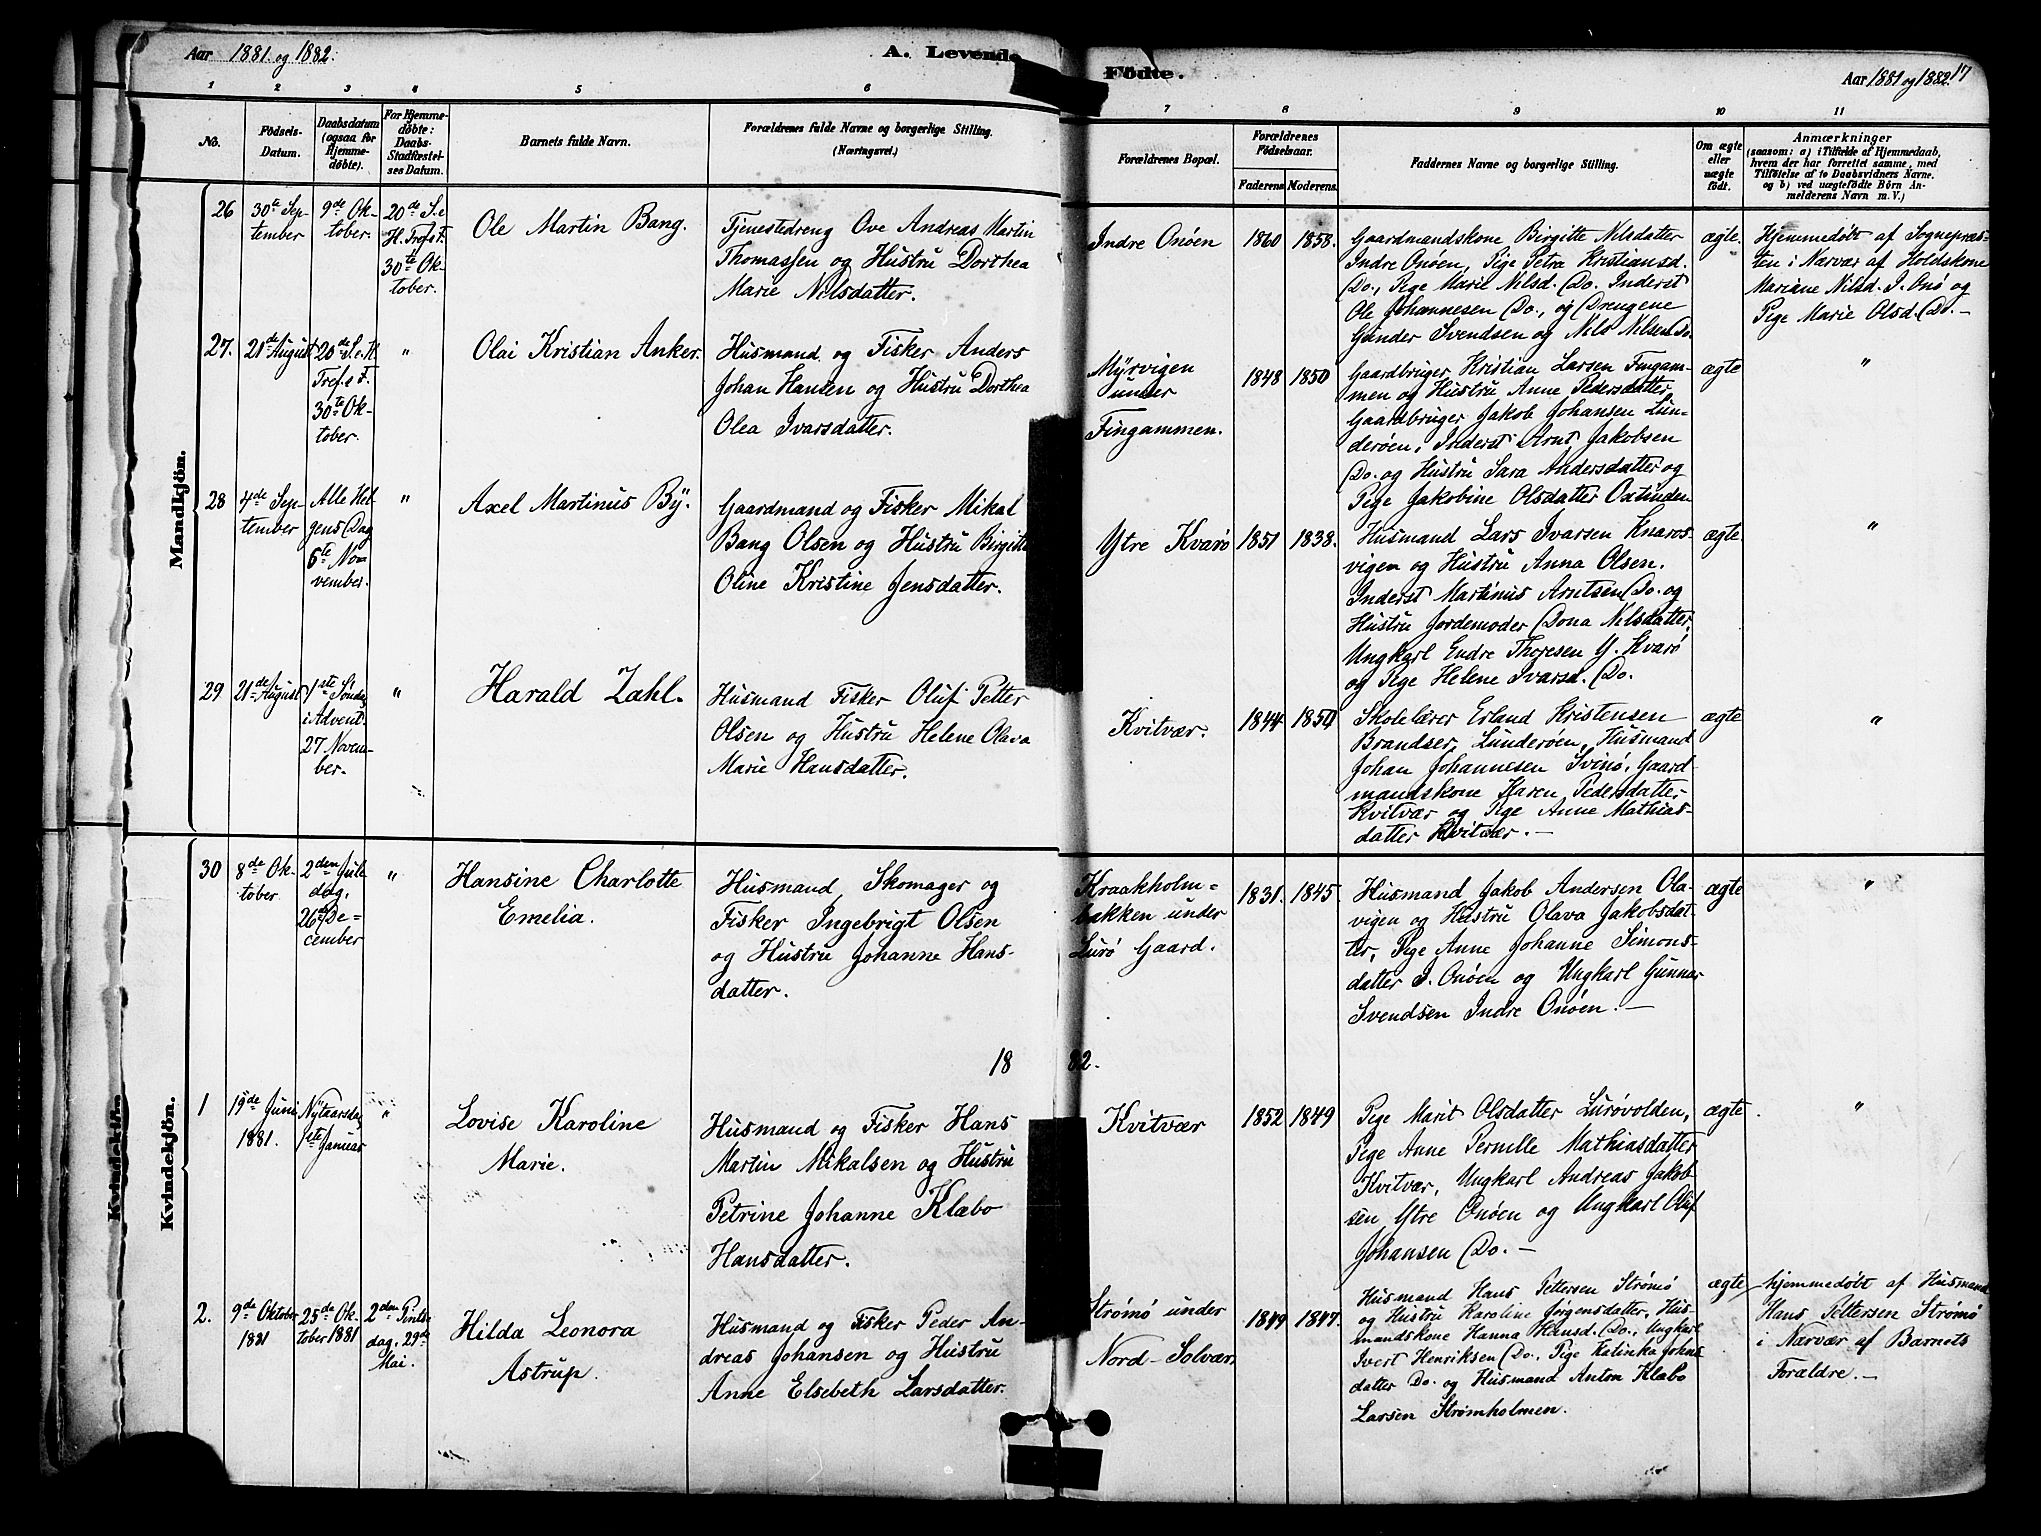 Aar 1881. og 1882.
A. Levende
Födte.
Aar 1881 og 1882. 17
1 2 3 4 5 6 7 8 9 10 11
No.
Födsels-
Datum.
Daabsdatum
(ogsaa for
Hjemme-
döbte).
For Hjemme-
döbte:
Daabs-
Stadfæstel-
ses Datum.
Barnets fulde Navn.
Forældrenes fulde Navne og borgerlige Stilling.
(Næringsvei.)
Forældrenes Bopæl.
Forældrenes
Födselsaar.
Faderens. Moderens.
Faddernes Navne og borgerlige Stilling.
Om ægte
eller
uægte
födt.
Anmærkninger
(saasom: a) i Tilfælde af Hjemmedaab,
hvem der har forrettet samme, med
Tilföielse af to Daabsvidners Navne.
og b) ved uægtefödte Börn An-
melderens Navn m. V.)
Mandkjön.
26
30te Sep-
tember
9de Ok-
tober.
20de S. e
H. Tref. F.
30te Ok-
tober.
Ole Martin Bang.
Tjenestedreng Ove Andreas Martin
Thomassen og Hustru Dorthea
Marie Nilsdatter.
Indre Onöen
1860 1858.
Gaardmandskone Birgitte Nilsdatter
Indre Onöen, Pige Petra Kristiansd.
Do., Pige Marie Nilsd. Do. Inderst
Ole Johannesen Do., og Drengene
Gunder Svendsen og Nils Nilsen Do.
ægte.
Hjemmedöbt af Sognepræs-
ten i Nærvær af Holdskone
Mariane Nilsd. I. Onö og
Pige Marie Olsd. Do. -
27.
21de August
20de S. e. H.
Tref. s F.
30te Ok-
tober.
"
Olai Kristian Anker.
Husmand og Fisker Anders
Johan Hansen og Hustru Dorthea
Olea Ivarsdatter.
Myrvigen
under
Fingammen.
1848 1850
Gaardbruger Kristian Larsen Fingam-
men og Hustru Anne Pedersdatter
Gaardbruger Jakob Johansen Lun-
deröen, Inderst Arnt Jakobsen
Do. og Hustru Sara Andersdatter og
Pige Jakobine Olsdatter Oxtinden
ægte
"
28
4de Sep-
tember
Alle Hel-
gens Dag
6te No-
vember.
"
Axel Martinus By.
Gaardmand og Fisker Mikal
Bang Olsen og Hustru Birgitte
Oline Kristine Jensdatter.
Ytre Kvarö
1851 1838.
Husmand Lars Ivarsen Knaros-
vigen og Hustru Anna Olsen.
Inderst Martinus Arntsen Do. og
Hustru Jordemoder Dona Nilsdatter,
Ungkarl Endre Thoresen Y. Kvarö
og Pige Helene Ivarsd. Do.
ægte
"
29
21de August
1ste Söndag
i Advent.
27 Novem-
ber.
"
Harald Zahl.
Husmand Fisker Oluf Petter
Olsen og Hustru Helene Olava
Marie Hansdatter.
Kvitvær.
1844 1850
Skolelærer Erland Kristensen
Brandser, Lunderöen, Husmand
Johan Johannesen Svinö, Gaard-
mandskone Karen Pedersdatter
Kvitvær og Pige Anne Mathias-
datter Kvitvær. -
ægte
"
Kvindekjön
Kvindekjön.
30
8de Ok-
tober
2den Jule-
dag.
26de De-
cember
"
Hansine Charlotte
Emelia.
Husmand, Skomager og
Fisker Ingebrigt Olsen
og Hustru Johanne Hans-
datter.
Kraakholm-
bakken under
Lurö Gaard.
1831. 1845.
Husmand Jakob Andersen Ola-
vigen og Hustru Olava Jakobsdat-
ter, Pige Anne Johanne Simons-
datter I. Onöen og Ungkarl Gunnar
Svendsen Indre Onöen. -
ægte
"
18 82.
1
19de Juni
1881.
Nytaarsdag
1ste Januar
"
Lovise Karoline
Marie.
Husmand og Fisker Hans
Martin Mikalsen og Hustru
Petrine Johanne Klæbo
Hansdatter.
Kvitvær
1852 1849
Pige Marit Olsdatter Lurövolden,
Pige Anne Pernille Mathiasdatter
Kvitvær, Ungkarl Andreas Jakob-
sen Ytre Onöen og Ungkarl Oluf
Johansen Do. -
ægte
"
2.
9de Oktober
1881
25de Ok-
tober 1881
2den Pints-
dag. 29de
Mai.
Hilda Leonora
Astrup.
Husmand og Fisker Peder An-
dreas Johansen og Hustru
Anne Elsebeth Larsdatter.
Strömö under
Nord-Solvær.
1849 1847.
Husmand Hans Pettersen Strömö
og Hustru Karoline Jörgensdatter, Hus-
mandskone Hanna Hansd. Do., Ungkarl
Ivert Henriksen Do., Pige Kalinka Johns-
datter Do. og Husmand Anton Klæbo
Larsen Strömholmen.
ægte
hjemmedöbt af Husmand
Hans Pettersen Strömö
i Nærvær af Barnets
Forældre. -